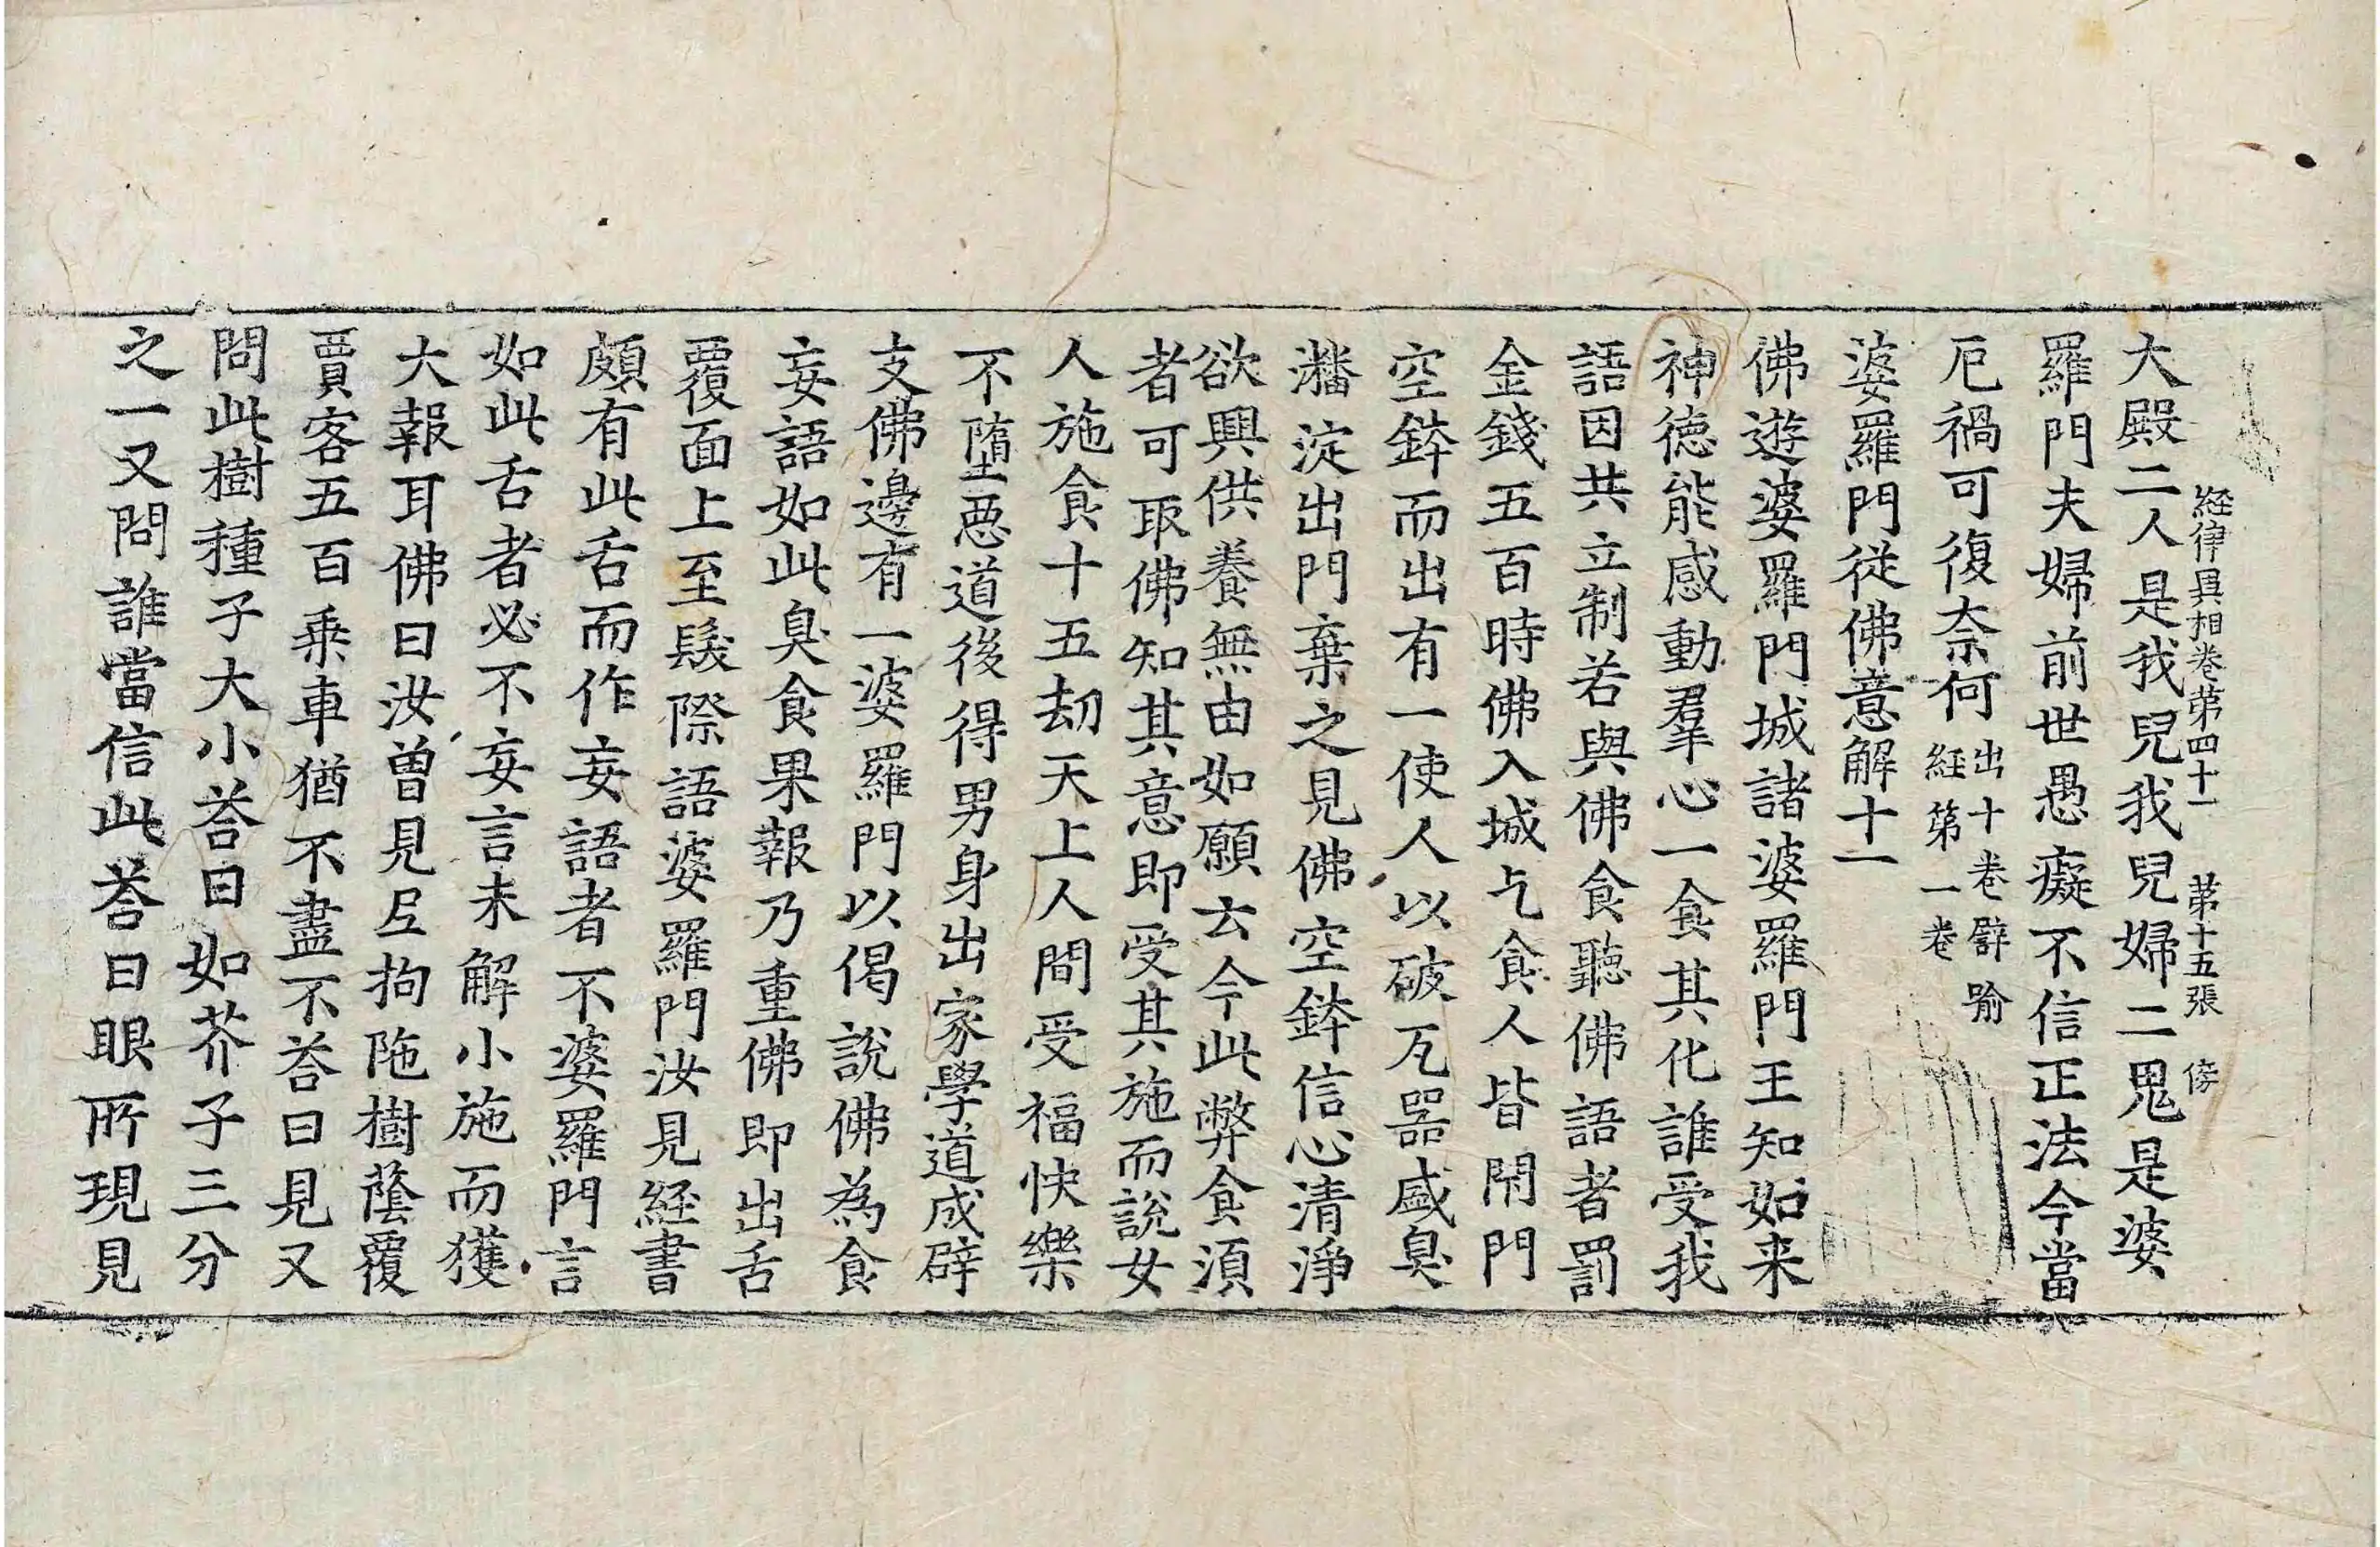 経律異相卷第四十一 第十五張 傍
大殿二人是我兒我兒婦二鬼是婆
羅門夫婦前世愚癡不信正法今當
厄禍可復奈何出十卷譬喻経第一卷
婆羅門從佛意解十一
佛遊婆羅門城諸婆羅門王知如来
神德能感動羣心一食其化誰受我
語因共立制若與佛食聽佛語者罰
金錢五百時佛入城乞食人皆閇門
空鉢而出有一使人以破瓦器盛臭
潘淀出門棄之見佛空鉢信心清淨
欲興供養無由如願云今此弊食湏
者可取佛知其意即受其施而說女
人施食十五劫天上人間受福快樂
不墮惡道後得男身出家學道成辟
支佛邊有一婆羅門以偈說佛為食
妄語如此臭食果報乃重佛即出舌
覆面上至髮際語婆羅門汝見経書
頗有此舌而作妄語者不婆羅門言
如此舌者必不妄言未解小施而獲
大報耳佛曰汝曽見尼拘陁樹蔭覆
賈客五百乗車猶不盡不荅曰見又
問此樹種子大小荅曰如芥子三分
之一又問誰當信此荅曰眼所現見